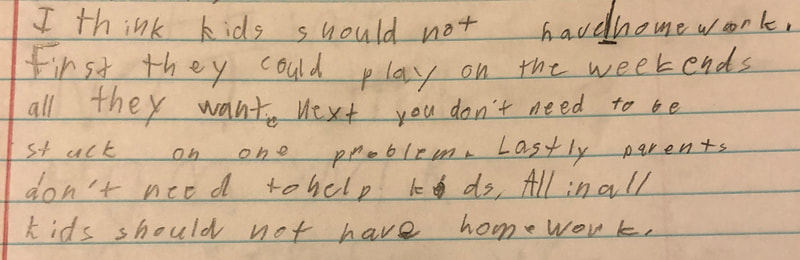 I think kids should not have homework.
First they could play on the weekends
all they want. Next you don't need to be
stuck on one problem. Lastly parents
don't need to help kids. All in all
kids should not have homework.